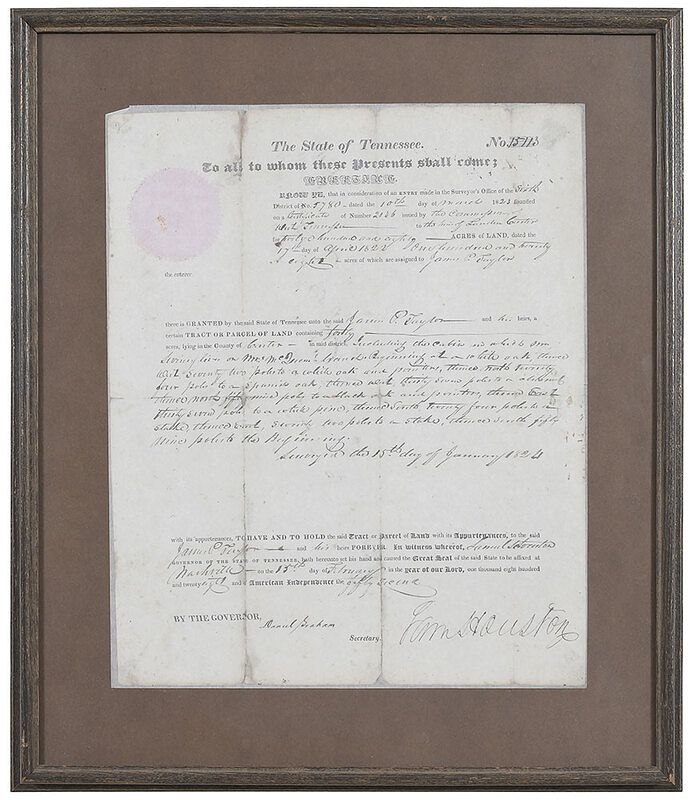 The State of Tennessee. No. 15113
To all to whom these Presents shall come;
GREETING.
KNOW YE, that in consideration of an ENTRY made in the Surveyor's Office of the Sixth
District of No. 5780 dated the 10th day of March 1821 founded
on a Certificate of Number 2136 issued by the Commissioner
West Tennessee to the heirs of Carter
for hundred and eighty ACRES of LAND, dated the
day of April 1822 One hundred and twenty
acres of which are assigned to James P. Taylor
the enterer.
there is GRANTED by the said State of Tennessee unto the said James P. Taylor and his heirs, a
certain TRACT OR PARCEL OF LAND containing forty
acres, lying in the County of Carter in said district Including the Cabin in which
lives on Branch Beginning at a white oak, thence
West Seventy two poles to a white oak and pointers, thence North twenty
four poles to a Spanish oak thence West thirty seven poles to a
thence North fifty nine poles to a black oak and pointers, thence East
thirty seven poles to a white pine, thence South twenty four poles to a
stake thence East, Seventy two poles to a stake, thence South fifty
nine poles to the Beginning
Surveyed the 15th day of January 1824
with its appurtenances, TO HAVE AND TO HOLD the said Tract or Parcel of Land with its Appurtenances, to the said
James P. Taylor and his heirs FOREVER. In witness whereof, Samuel Houston
GOVERNOR OF THE STATE OF TENNESSEE, hath hereunto set his hand and caused the Great Seal of the said State to be affixed at
Nashville on the 15th day of February in the year of our Lord, one thousand eight hundred
and twenty eight and of American Independence the fifty second
BY THE GOVERNOR,
Daniel Graham
Secretary.
Sam Houston